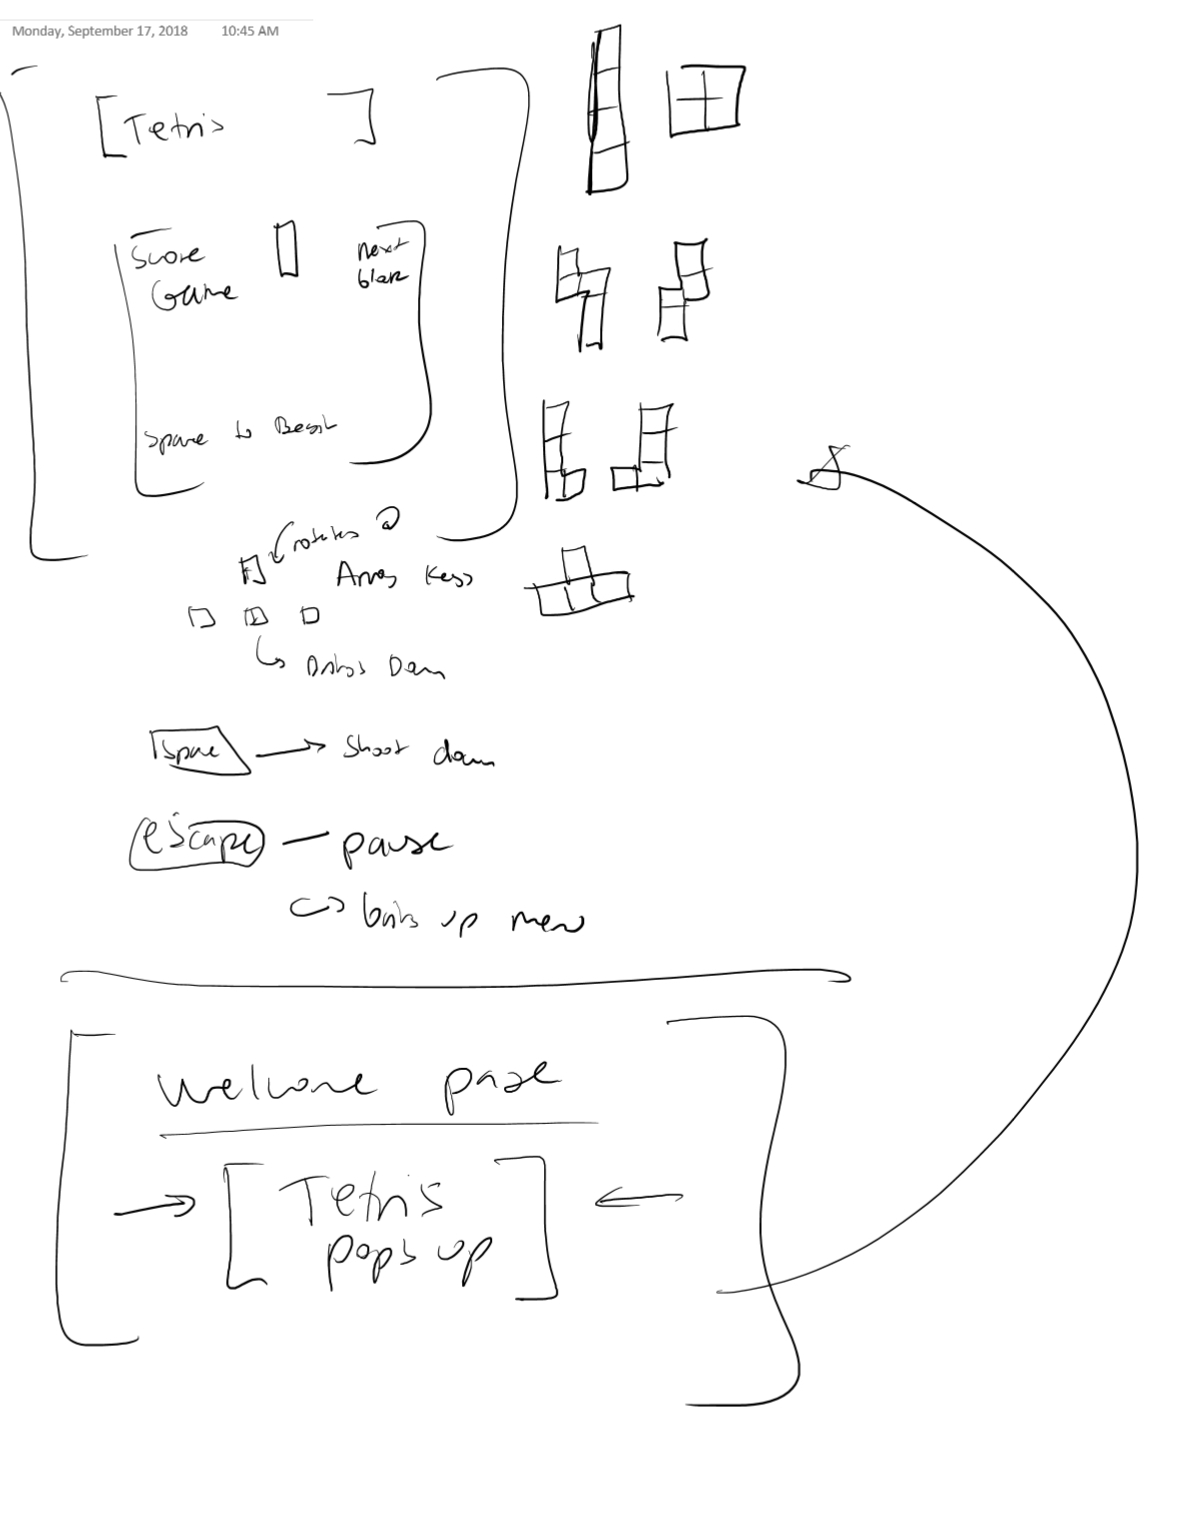 Monday, September 17, 2018 10:45 AM
Tetris
Score
next
Game
block
Space to Begin
rotates
Arrow Keys
Down
Space
Shoot down
escape
pause
brings up menu
Welcome page
Tetris
pops up